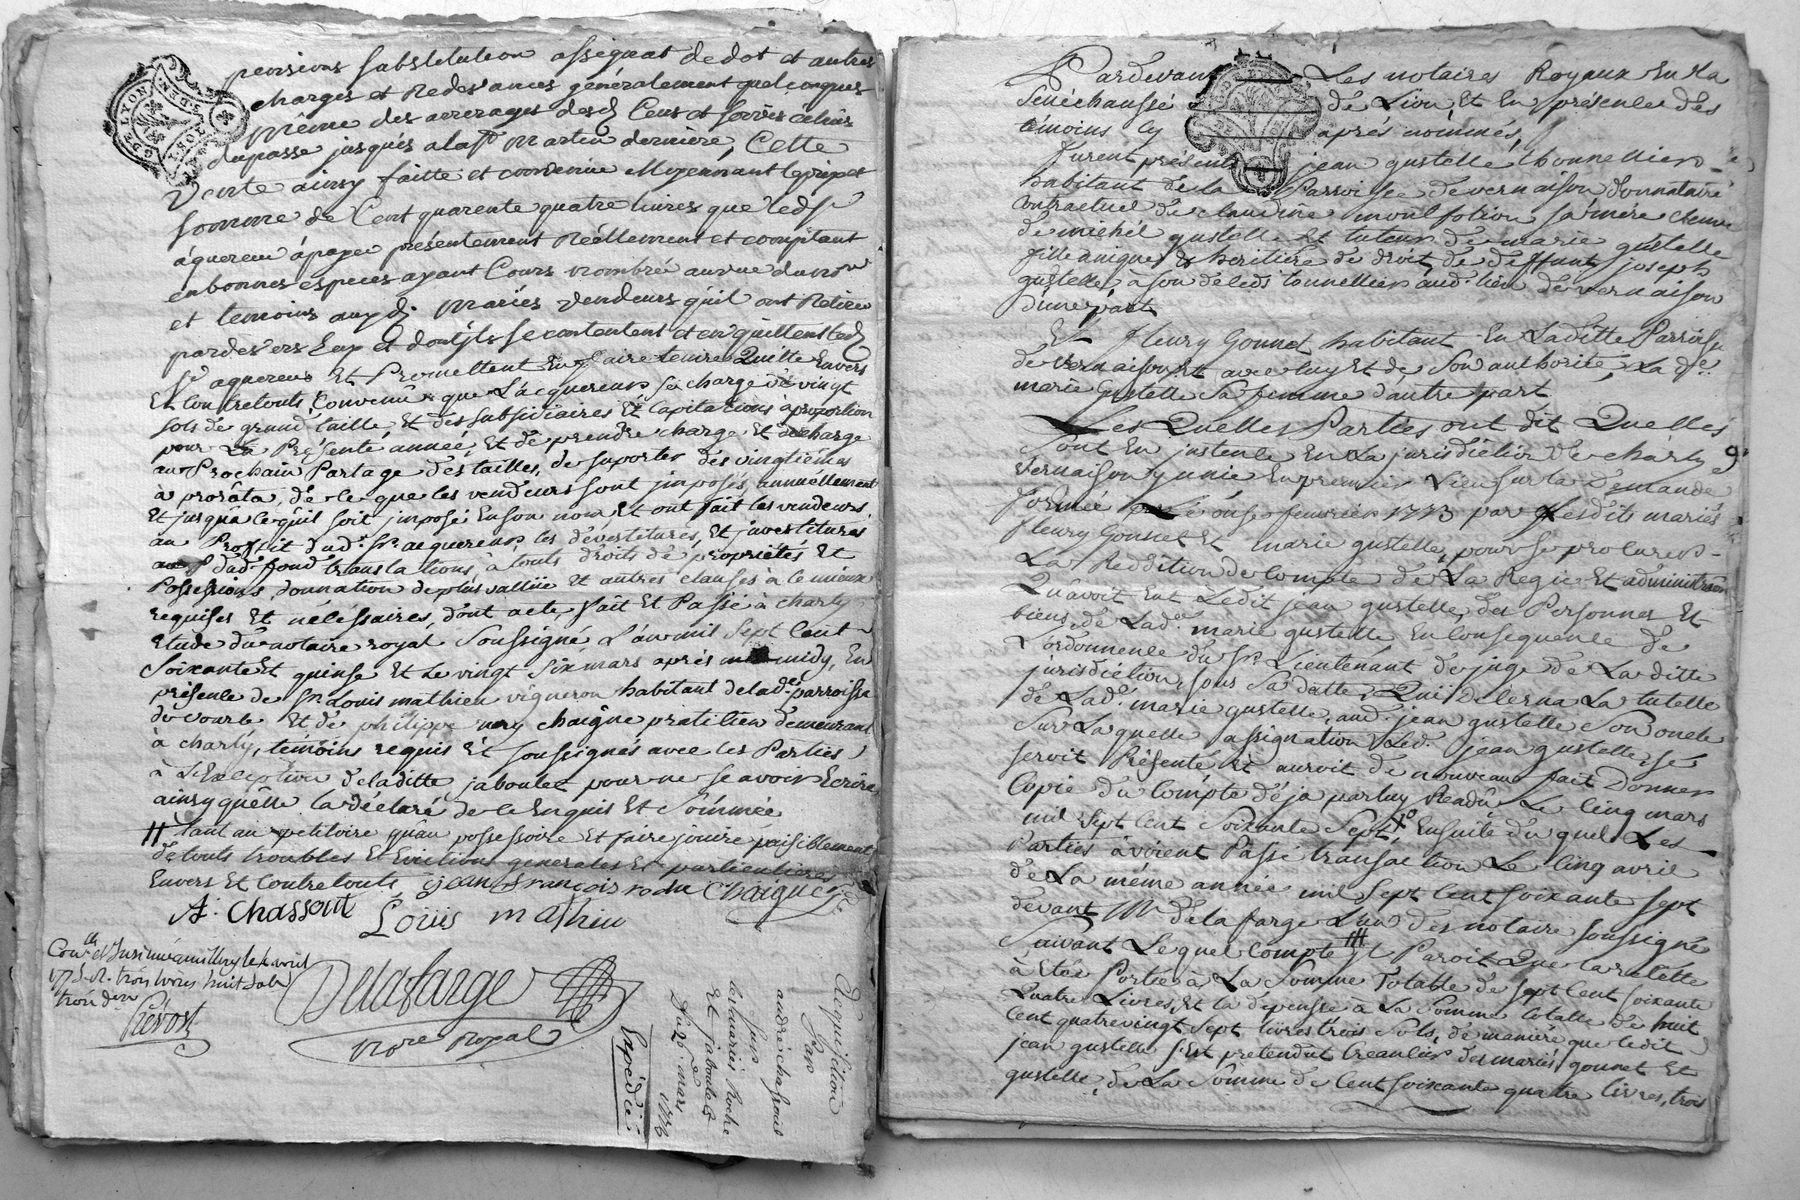 pensions substitution assignat de dot et autres
charges et Redevances généralement quelconques
même des arrerages desd Cens et servis
du passé jusques a la st martin derniere, Cette
Vente ainsy faitte et convenüe Moyennant le prix et
somme de Cent quarente quatre livres que led sr
aquereur à payé présentement Réellement et comptant
en bonnes especes ayant Cours nombré au vue du nore
et temoins auxd. mariés vendeurs qui l'ont Retiré
pardevers Eux et dont ils se contentent et en quittent led
sr aquereur Et Promettent En faire tenir Quitte Envers
Et Contre touts, Convenu que L'acquereur se charge de vingt
sols de grand taille, Et des subsidiaires Et Capitations à proportion
pour La Présente année, Et de prendre charge Et décharge
au Prochain Partage des tailles, de suporter des vingtiémes
à prorâta, de ce que les vendeurs sont jmposés annuellement
Et jusqu'a ce qu'il soit jmposé En son nom Et ont fait les vendeurs
au Proffit dud. sr. acquereur les dévestitures, Et jnvestitures
dud. fond translations, à touts droits de propriétés Et
Possessions, donnation de plus vallüe Et autres clauses à ce mieux
requises Et nécéssaires, dont acte, fait Et Passé à Charly
Etude du notaire royal soussigné L'an mil sept cent
soixante Et quinse Et Le vingt six mars aprés midy, En
présence de sr. Louis mathieu vigneron habitant de lade. parroisse
de vourle Et de philippe mery chaigne praticien demeurant
à charly, témoins requis Et soussignés avec les Parties
à L'Exception de laditte jaboulet pour ne savoir Ecrire
ainsy qu'elle la déclaré de ce Enquis Et sommée
# tant au petitoire quau possessoire et faire jouire paisiblement
de touts troubles Et Evictions generales Et particulieres
Envers Et Contre touts, jean françois roche Chaigne
A. Chassout Louis mathieu
Conle. et Insinué a millery le avril
1775. R. trois livres huit sols
trois der
Prévost
Delafarge
nore royal
Acquisition
Par
andré
sur
les mariés Roche
Et jaboulet
Du 26e mars
1775
Expédiée
Pardevant Les notaires Royaux En La
Sénéchaussé de Lion Et En présence des
témoins cy aprés nommés,
furent présents jean gustelle, thonnellier
habitant de la Parroisse de vernaison donnataire
contractuel de claudine montfotion sa mére veuve
de michel gustelle et tuteur de marie gustelle
fille unique Et heritiére de droit de deffunt joseph
gustelle, à son décéds tonnellier aud. lieu de vernaison
d'une part
Et fleury Gonnet habitant En Laditte Parroisse
de vernaison Et avec luy Et de son authorité, La de.
marie gustelle sa femme d'autre part
Les Quelles Parties ont dit Quelles
sont En jnstence En La jurisdiction de charly
vernaison y unie En premier Lieu sur la Demande
formée Le onse fevrier 1773 par Lesdits mariés
fleury Gonnet Et marie gustelle, pour se procurer
La Reddition de Compte de La Regie Et administration
Qu'avoit Eut Ledit jean gustelle des Personnes Et
biens, de Lade. marie gustelle En Consequence de
L'ordonnence du sr. Lieutenant de juge de Laditte
jurisdiction, sous Sa datte, Qui Decerna La tutelle
de Lade. marie gustelle, aud. jean gustelle son oncle
Sur Laquelle assignation Led. jean gustelle, se
seroit Présenté Et auroit de nouveau fait Donner
Copie du Compte déja par luy Rendû Le Cinq mars
mil sept Cent soixante sept, Ensuite du quel Les
Parties avoient Passé transaction Le Cinq avril
de La même année mil sept cent soixante sept
devant Me delafarge L'un des notaire soussigné
Suivant Lequel Compte il Paroit Que la recette
à Etée Portée à La Somme Totalle de sept Cent soixante
Quatre Livres, Et la depense à La Somme totalle de huit
Cent quatrevingt sept livres trois sols, de maniére que ledit
jean gustelle s'Est pretendut Creancier des mariés gonnet Et
gustelle, de La Sômme de Cent soixante quatre livres, trois